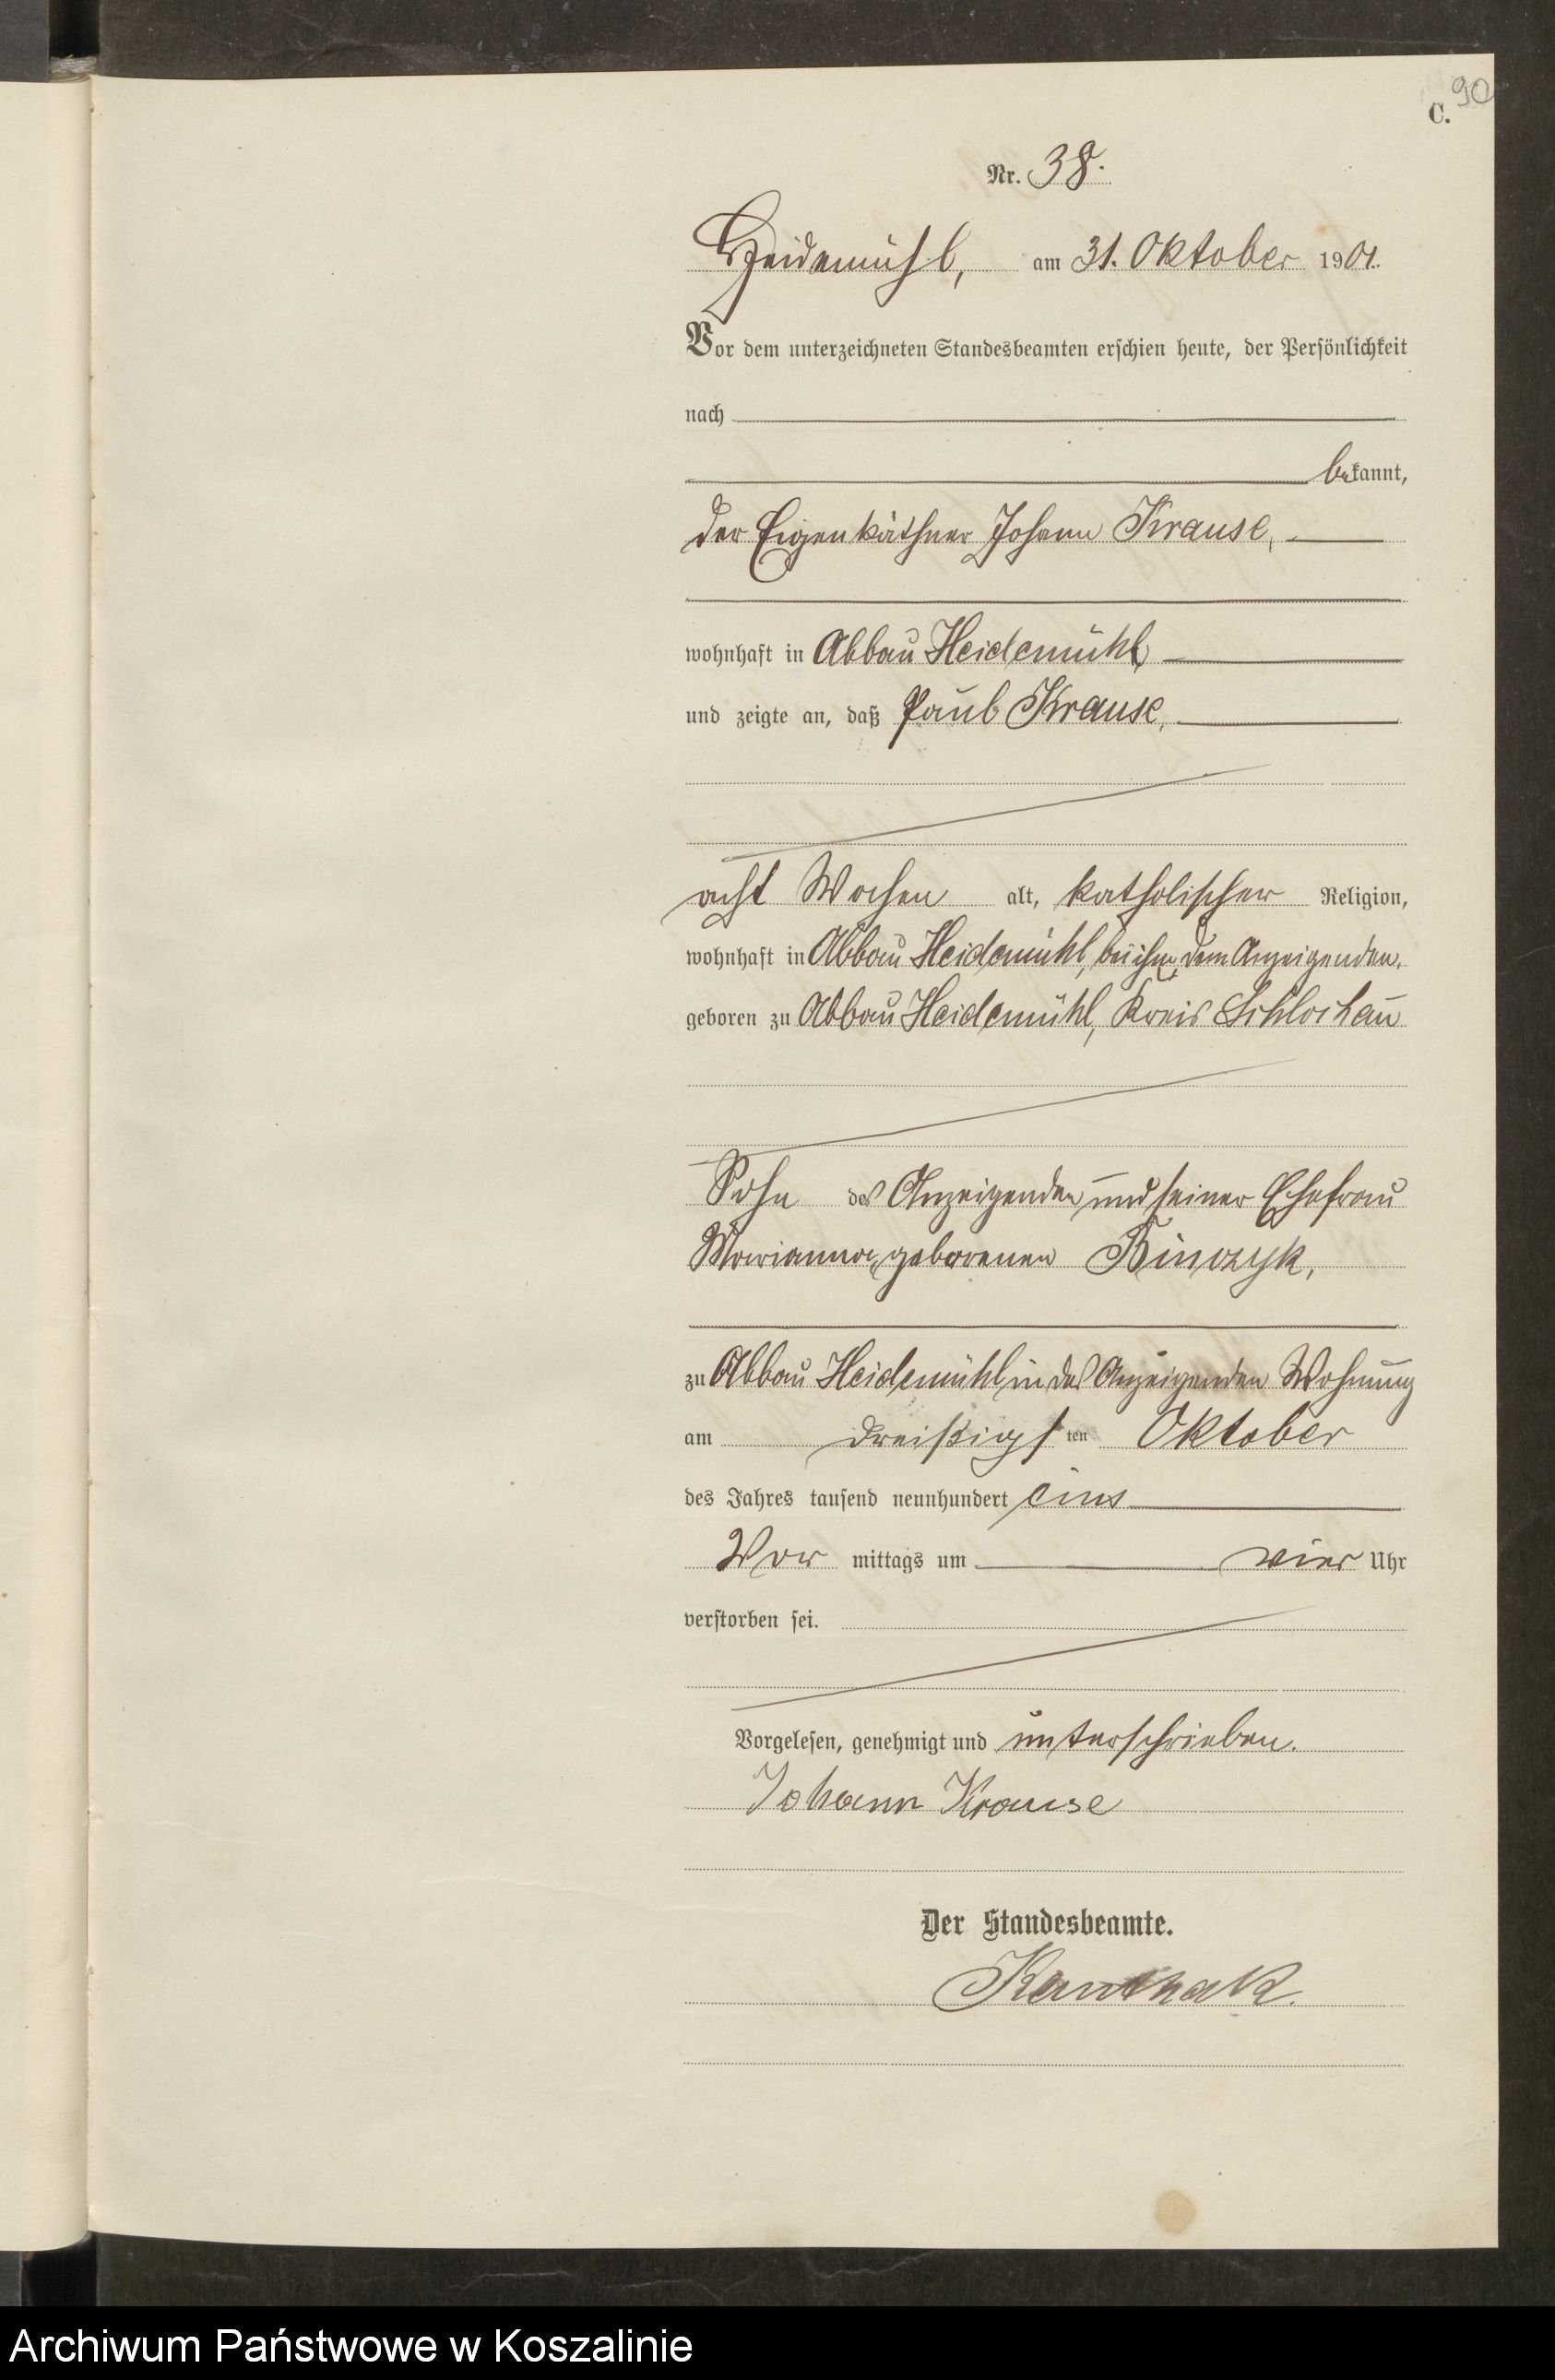 90
C.
Nr. 38.
Heidemühl, am 31. Oktober 1901.
Vor dem unterzeichneten Standesbeamten erschien heute, der Persönlichkeit
nach
bekannt,
der Eigenkäthner Johann Krause,
wohnhaft in Abbau Heidemühl
und zeigte an, daß Paul Krause,
acht Wochen alt, katholischer Religion,
wohnhaft in Abbau Heidemühl, bei ihm, dem Anzeigenden,
geboren zu Abbau Heidemühl, Kreis Schlochau
Sohn des Anzeigenden und seiner Ehefrau
Marianna, geborenen Binczyk,
zu Abbau Heidemühl in des Anzeigenden Wohnung
am dreißigsten Oktober
des Jahres tausend neunhundert eins
Vor mittags um vier Uhr
verstorben sei.
Vorgelesen, genehmigt und unterschrieben.
Johann Krause
Der Standesbeamte.
Archiwum Państwowe w Koszalinie